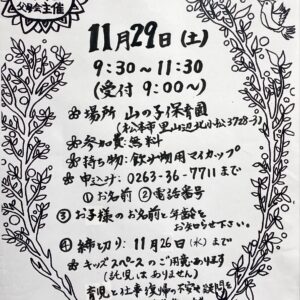 父母会主催
11月29日(土)
9:30〜11:30
(受付 9:00〜)
場所 山の子保育園
(松本市里山辺北小松3728-3)
参加費無料
持ち物:飲み物用マイカップ
申込み:0263-36-7711まで
①お名前 ②電話番号
③お子様のお名前と年齢を
お知らせ下さい。
締切り:11月26日(水)まで
キッズスペースのご用意あります
(託児はありません)
育児と仕事復帰の不安や疑問を